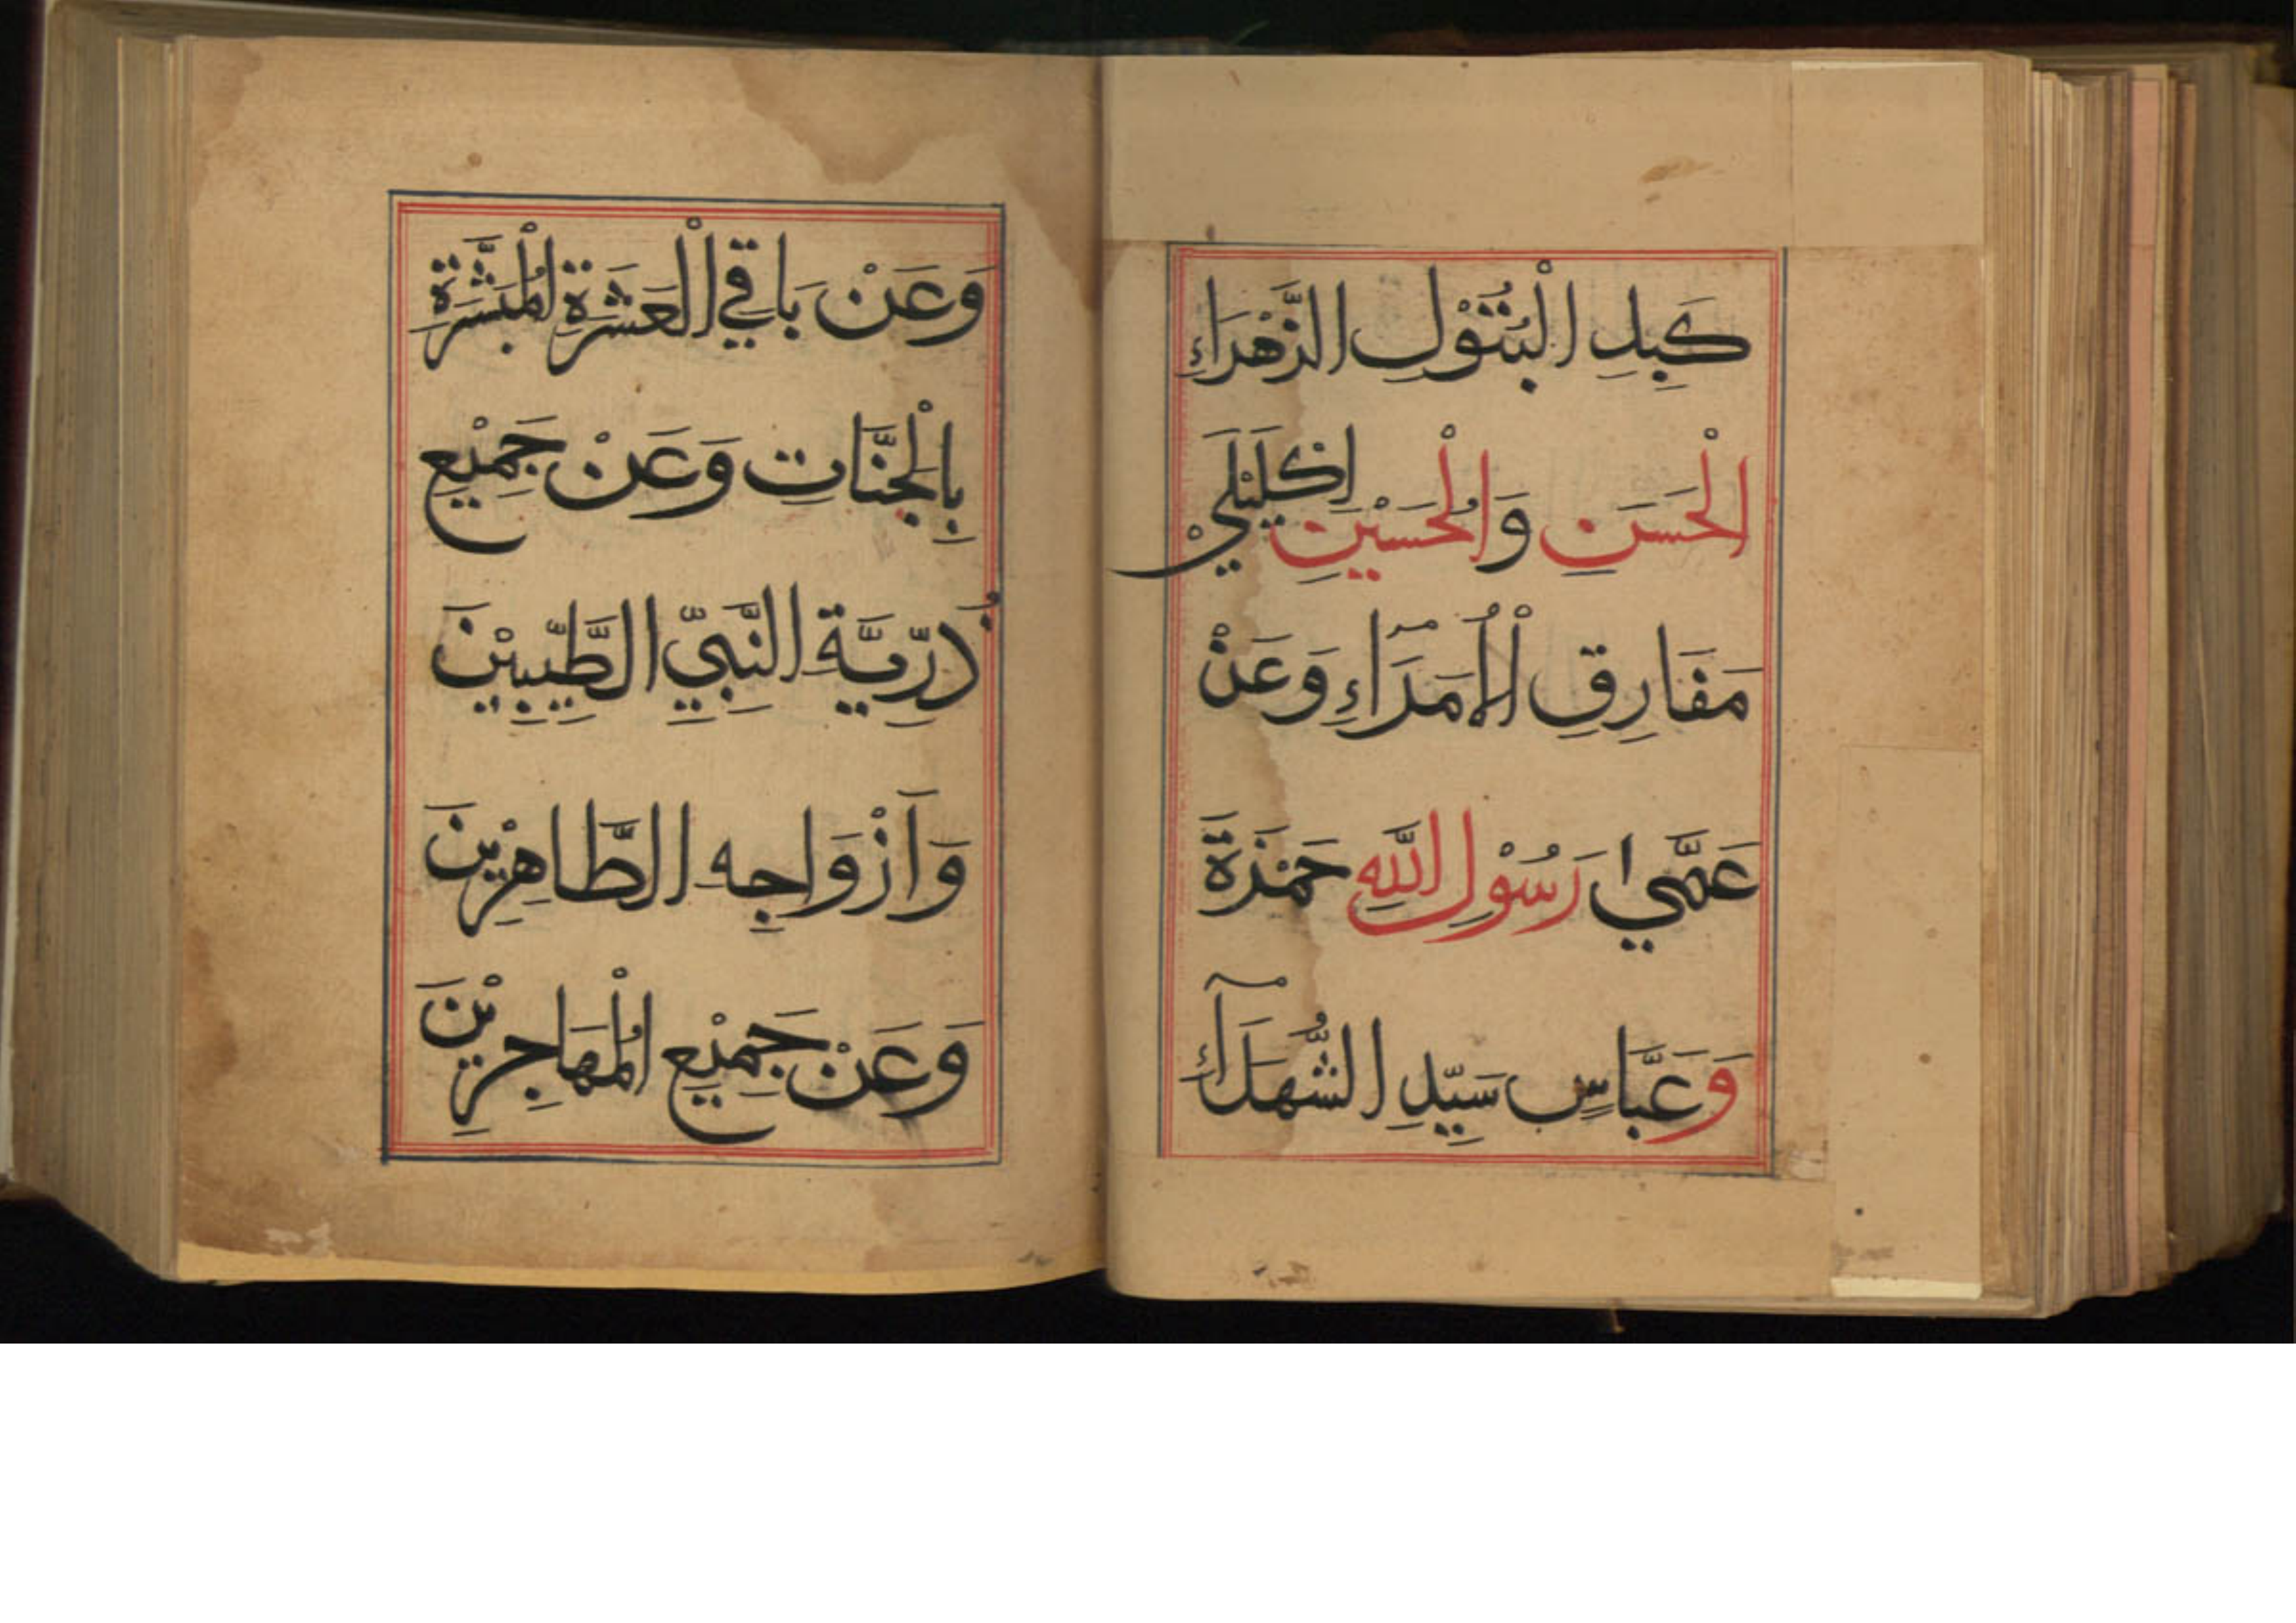 كَبِدِ الْبُتُوْلِ الزَّهْرَاءِ
الْحَسَنِ وَالْحُسَيْنِ اِكْلَيْلَيْ
مَفَارِقِ الْاُمَرَاءِ وَعَنْ
عَمَّيْ رَسُوْلِ اللّٰهِ حَمْزَةَ
وَعَبَّاسٍ سَيِّدِ الشُّهَدَآءِ
وَعَنْ بَاقِي الْعَشَرَةِ الْمُبَشَّرَةِ
بِالْجَنَّاتِ وَعَنْ جَمِيْعِ
ذُرِّيَّةِ النَّبِيِّ الطَّيِّبِيْنَ
وَاَزْوَاجِهِ الطَّاهِرِيْنَ
وَعَنْ جَمِيْعِ الْمُهَاجِرِيْنَ